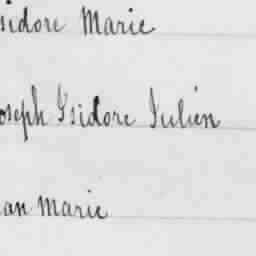 sidore Marie
oseph Isidore Julien
an Marie